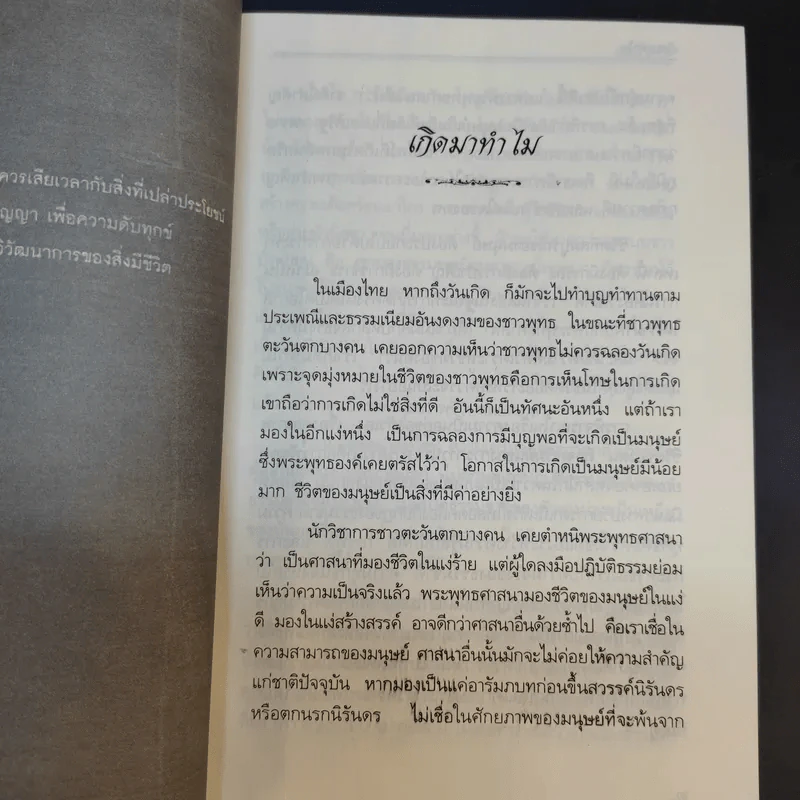 ควรเสียเวลากับสิ่งที่เปล่าประโยชน์
เพื่อความดับทุกข์
วิวัฒนาการของสิ่งมีชีวิต
เกิดมาทำไม
ในเมืองไทย หากถึงวันเกิด ก็มักจะไปทำบุญทำทานตาม
ประเพณีและธรรมเนียมอันงดงามของชาวพุทธ ในขณะที่ชาวพุทธ
ตะวันตกบางคน เคยออกความเห็นว่าชาวพุทธไม่ควรฉลองวันเกิด
เพราะจุดมุ่งหมายในชีวิตของชาวพุทธคือการเห็นโทษในการเกิด
เขาถือว่าการเกิดไม่ใช่สิ่งที่ดี อันนี้ก็เป็นทัศนะอันหนึ่ง แต่ถ้าเรา
มองในอีกแง่หนึ่ง เป็นการฉลองการมีบุญพอที่จะเกิดเป็นมนุษย์
ซึ่งพระพุทธองค์เคยตรัสไว้ว่า โอกาสในการเกิดเป็นมนุษย์มีน้อย
มาก ชีวิตของมนุษย์เป็นสิ่งที่มีค่าอย่างยิ่ง
นักวิชาการชาวตะวันตกบางคน เคยตำหนิพระพุทธศาสนา
ว่า เป็นศาสนาที่มองชีวิตในแง่ร้าย แต่ผู้ใดลงมือปฏิบัติธรรมย่อม
เห็นว่าความเป็นจริงแล้ว พระพุทธศาสนามองชีวิตของมนุษย์ในแง่
ดี มองในแง่สร้างสรรค์ อาจดีกว่าศาสนาอื่นด้วยซ้ำไป คือเราเชื่อใน
ความสามารถของมนุษย์ ศาสนาอื่นนั้นมักจะไม่ค่อยให้ความสำคัญ
แก่ชาติปัจจุบัน หากมองเป็นแค่อารัมภบทก่อนขึ้นสวรรค์นิรันดร
หรือตกนรกนิรันดร ไม่เชื่อในศักยภาพของมนุษย์ที่จะพ้นจาก